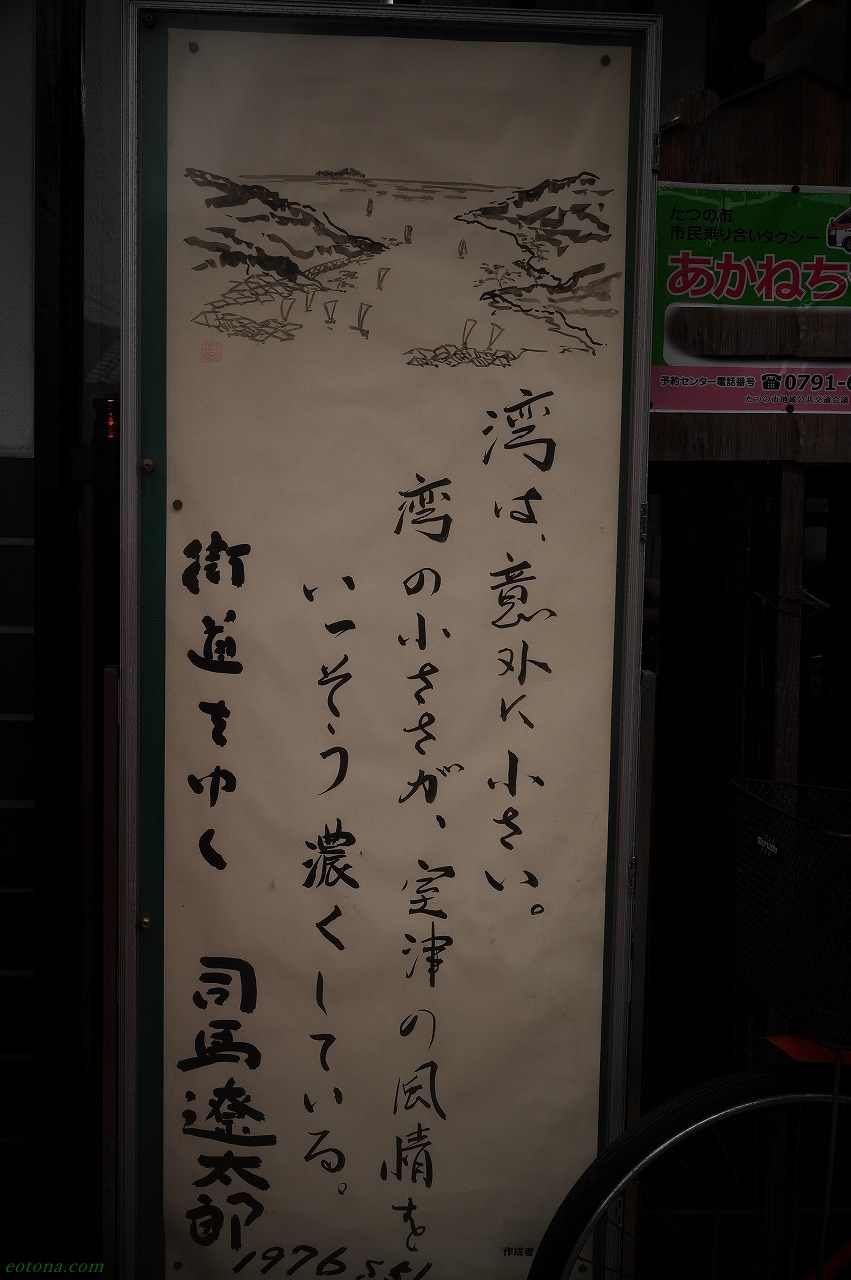 湾は、意外に小さい。
湾の小ささが、室津の風情を
いっそう濃くしている。
街道をゆく 司馬遼太郎
1976 S51
作成者
たつの市
市民乗り合いタクシー
あかねち
予約センター電話番号 ☎0791-6
たつの市地域公共交通会議
eotona.com